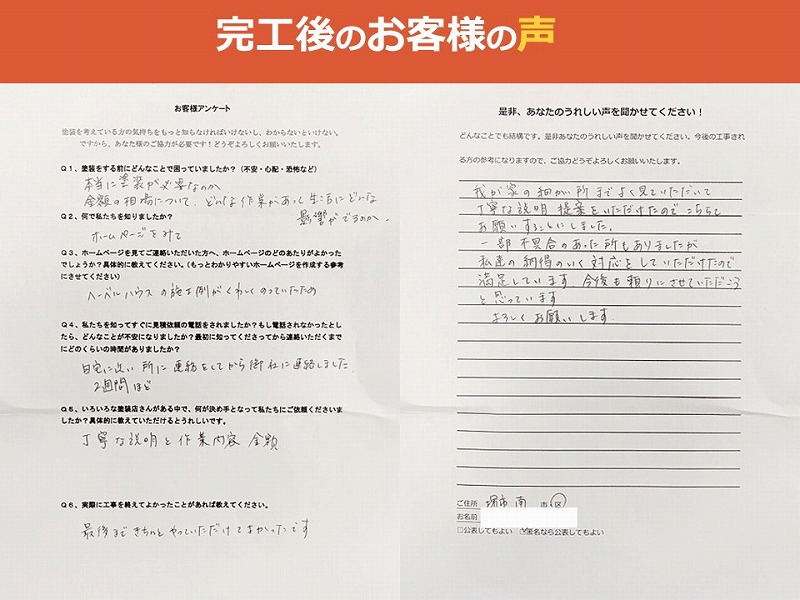 完工後のお客様の声
お客様アンケート
塗装を考えている方の気持ちをもっと知らなければいけないし、わからないといけない。
ですから、あなた様のご協力が必要です！どうぞよろしくお願いいたします。
Q1、塗装をする前にどんなことで困っていましたか？（不安・心配・恐怖など）
本当に塗装が必要なのか
金額の相場について、どんな作業があり、生活にどんな
影響がでるのか、
Q2、何で私たちを知りましたか？
ホームページをみて
Q3、ホームページを見てご連絡いただいた方へ、ホームページのどのあたりがよかった
でしょうか？具体的に教えてください。（もっとわかりやすいホームページを作成する参考
にさせてください）
ヘーベルハウスの施工例がくわしくのっていたため
Q4、私たちを知ってすぐに見積依頼の電話をされましたか？もし電話されなかったとし
たら、どんなことが不安になりましたか？最初に知ってくださってから連絡いただくま
でにどのくらいの時間がありましたか？
自宅に近い所に連絡をしてから御社に連絡しました。
2週間ほど
Q5、いろいろな塗装店さんがある中で、何が決め手となって私たちにご依頼くださいま
したか？具体的に教えていただけるとうれしいです。
丁寧な説明と作業内容 金額
Q6、実際に工事を終えてよかったことがあれば教えてください。
最後まできちんとやっていただけてよかったです
是非、あなたのうれしい声を聞かせてください！
どんなことでも結構です。是非あなたのうれしい声を聞かせてください。今後の工事され
る方の参考になりますので、ご協力どうぞよろしくお願いいたします。
我が家の細かい所までよく見ていただいて
丁寧な説明 提案をいただけたのでこちらで
お願いすることにしました。
一部不具合のあった所もありましたが
私達の納得のいく対応をしていただけたので
満足しています 今後も頼りにさせていただこう
と思っています
よろしくお願いします。
ご住所 堺市 南 市・区
お名前
□公表してもよい ☑匿名なら公表してもよい